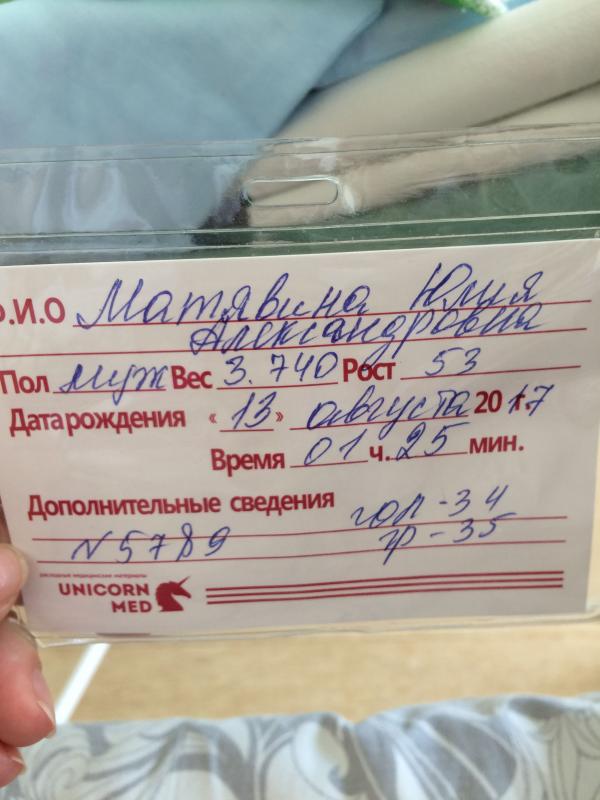 Ф.И.О Матявина Юлия
Александровна
Пол муж Вес 3.740 Рост 53
Дата рождения «13» августа 2017 г.
Время 01 ч. 25 мин.
Дополнительные сведения гол - 34
N 5789 гр - 35
расходные медицинские материалы
UNICORN
MED